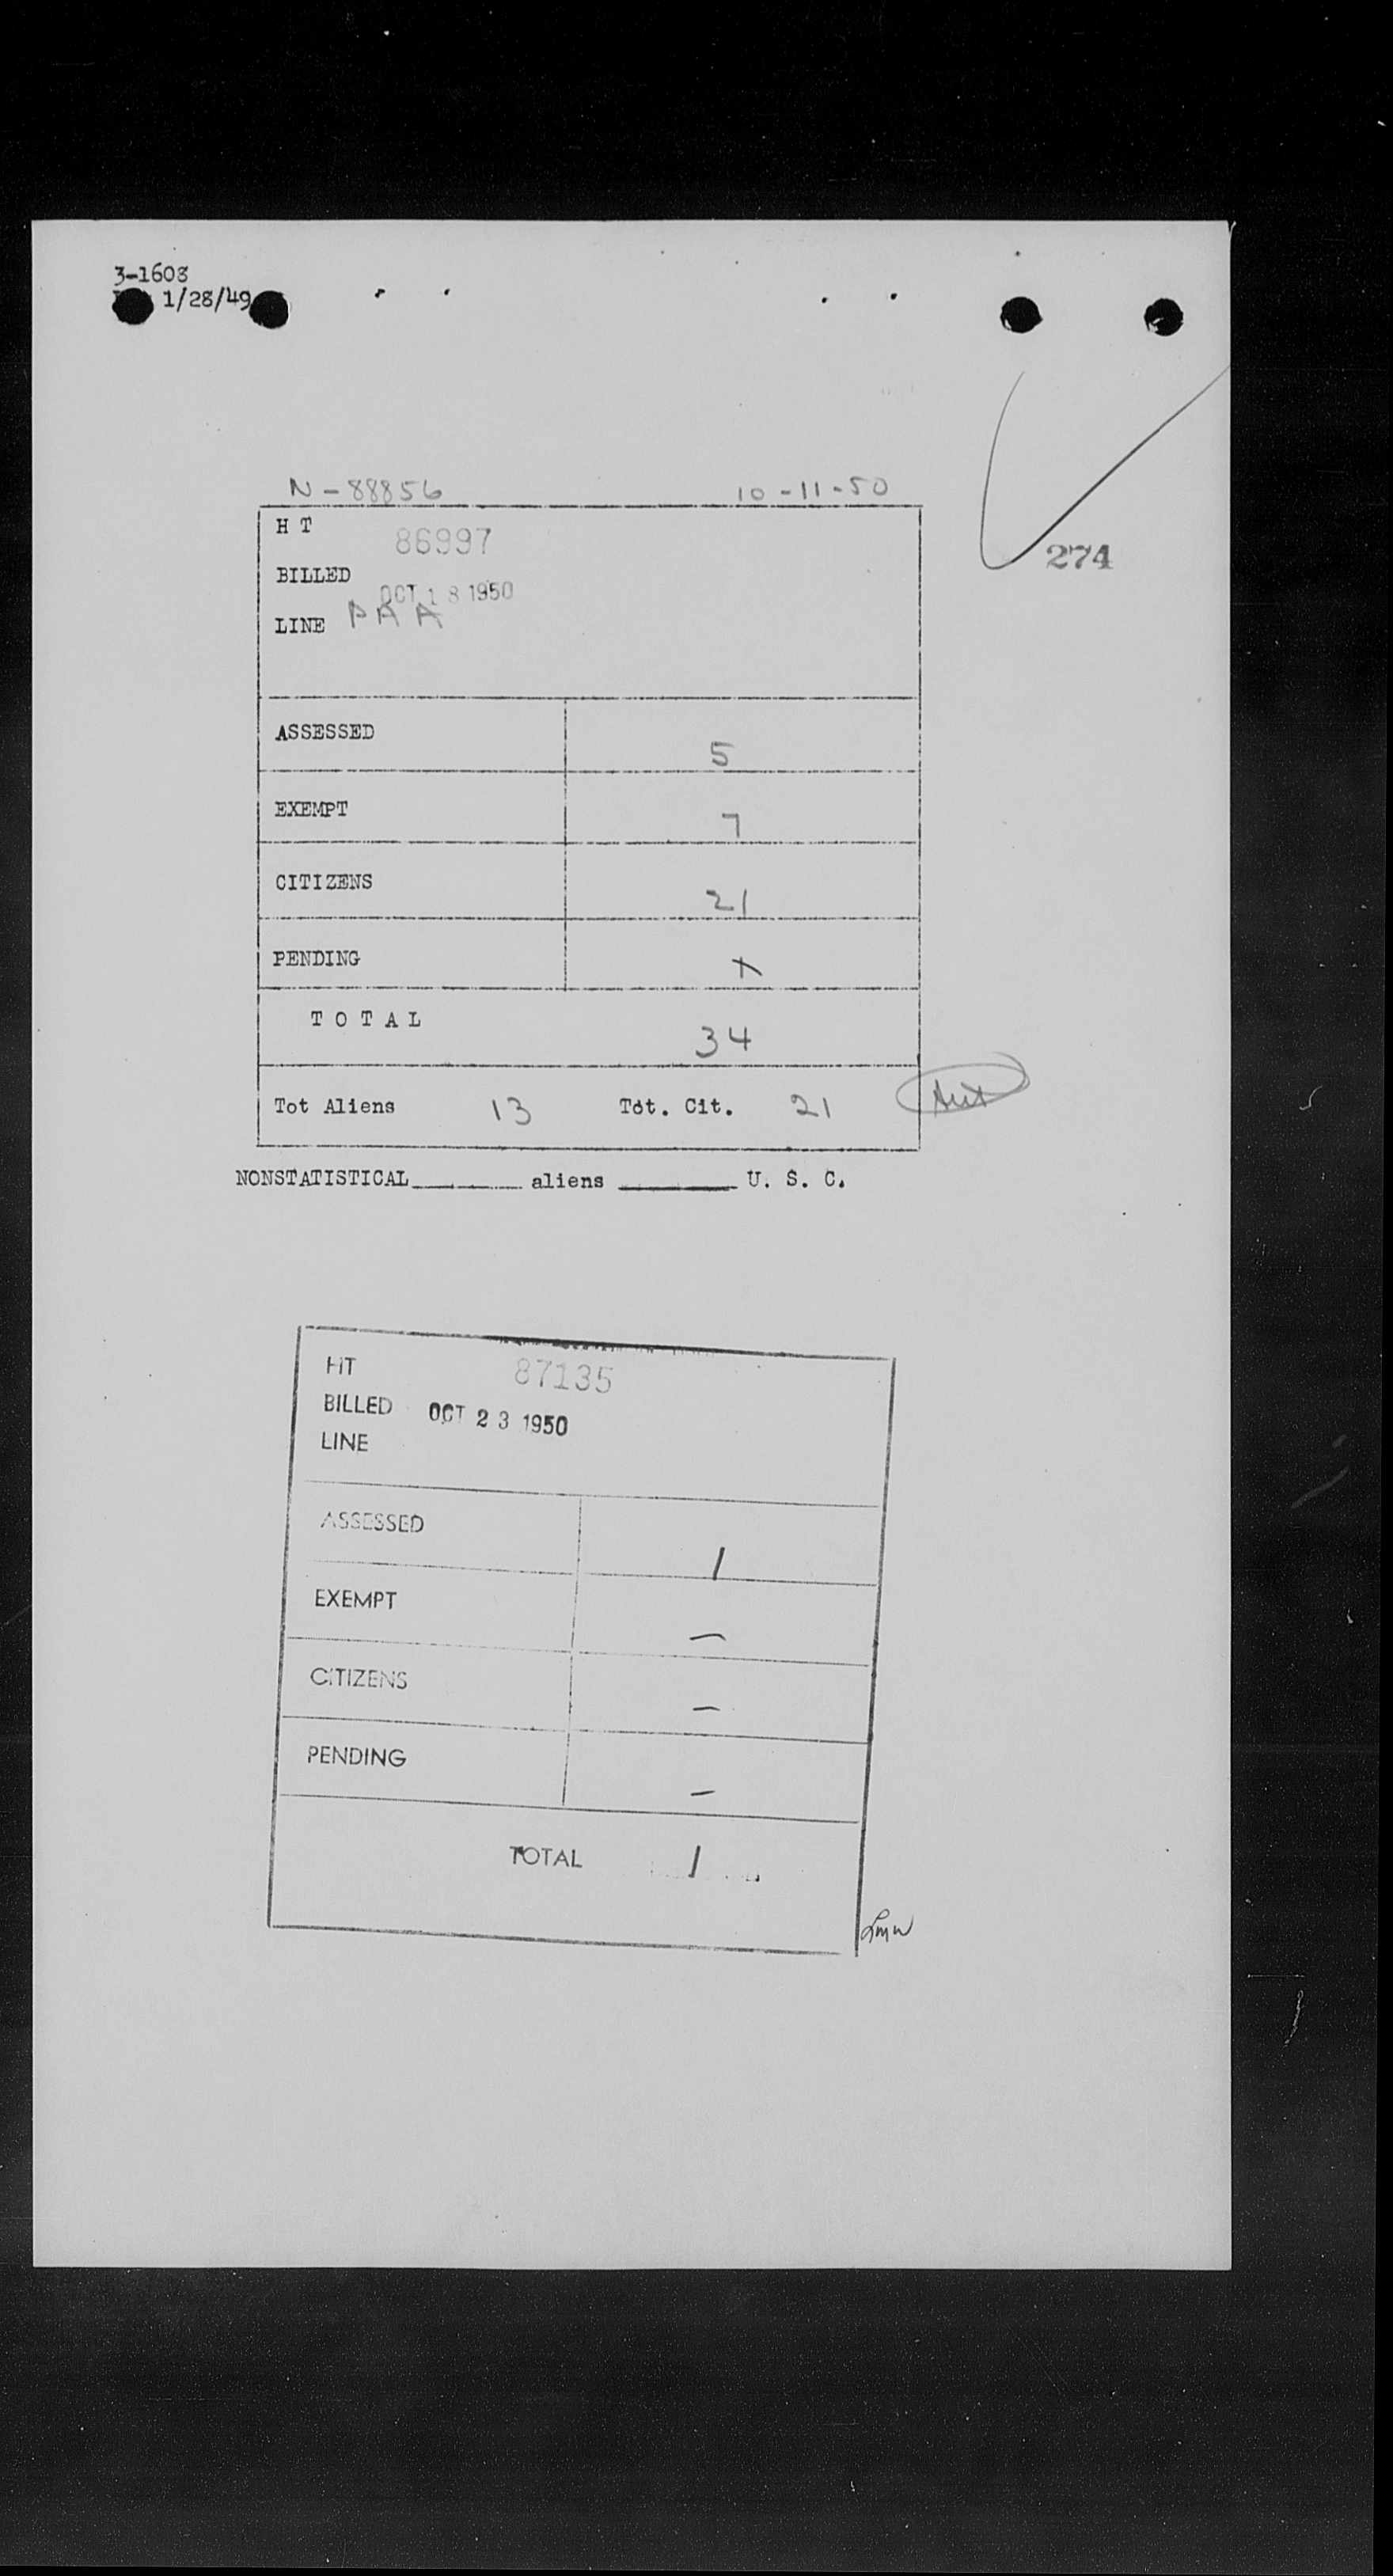 3-1608
1/28/49
N-88856 10-11-50
H T 86997
BILLED OCT 18 1950
LINE PAA
274
ASSESSED 5
EXEMPT 7
CITIZENS 21
PENDING X
TOTAL 34
Tot Aliens 13 Tot. Cit. 21
NONSTATISTICAL aliens U. S. C.
HT 87135
BILLED OCT 23 1950
LINE
ASSESSED 1
EXEMPT —
CITIZENS —
PENDING —
TOTAL 1